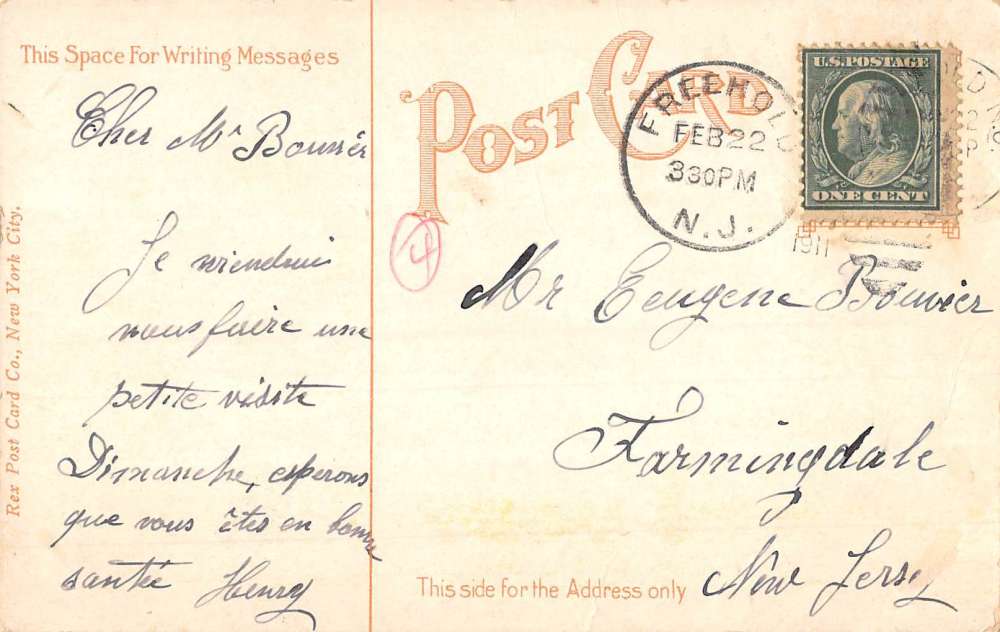 This Space For Writing Messages
Cher Mr Bouvier
Je viendrai
vous faire une
petite visite
Dimanche, esperons
que vous êtes en bonne
santée Henry
Rex Post Card Co., New York City.
POST CARD
FREEHOLD
FEB 22
330PM
N.J.
1911
U.S. POSTAGE
ONE CENT
4
Mr Eeugene Bouvier
Farmingdale
New Jersey
This side for the Address only